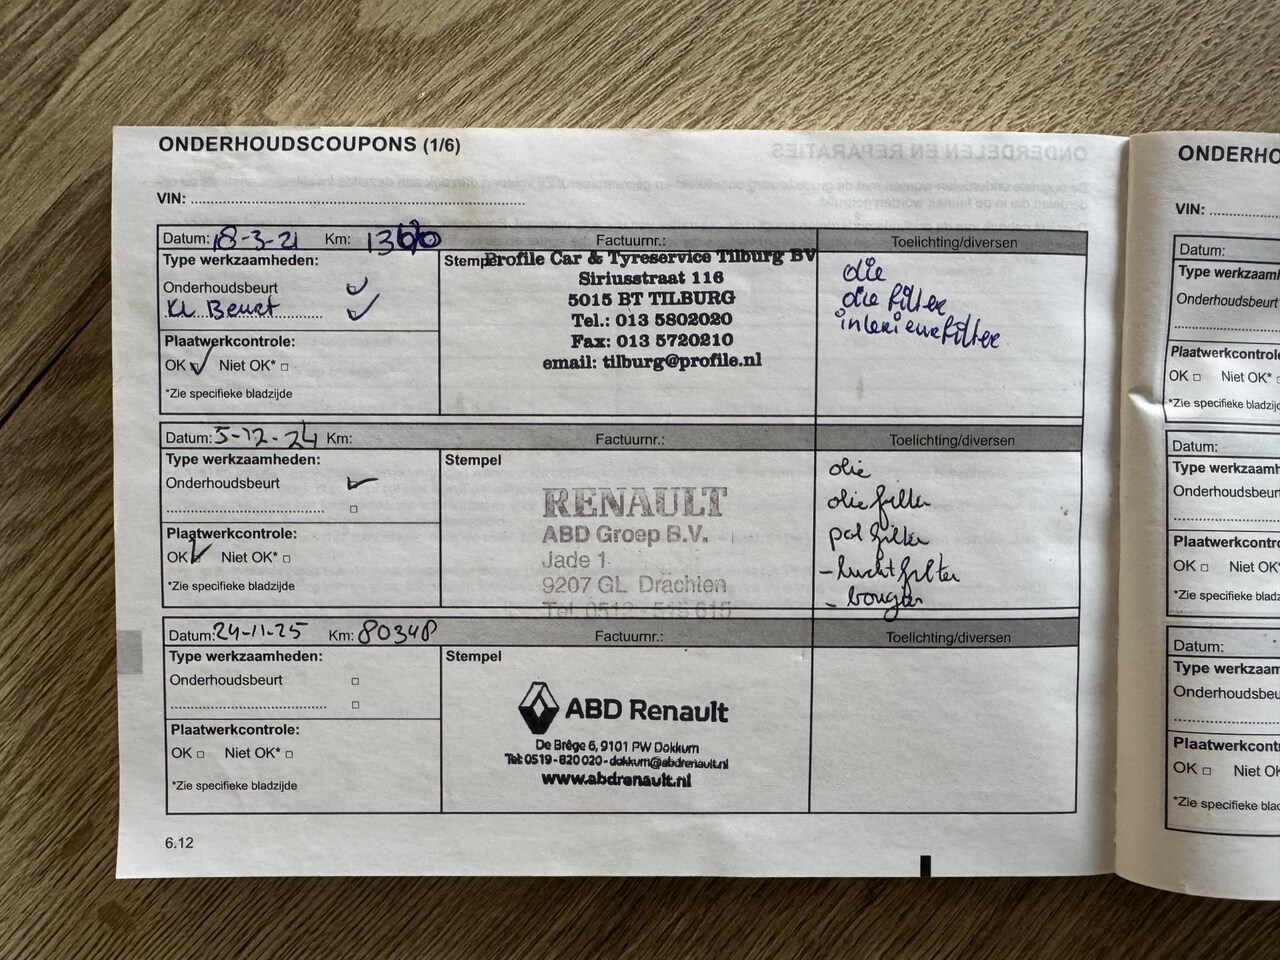 ONDERHOUDSCOUPONS (1/6)
VIN:
Datum: 18-3-21 Km: Factuurnr.: Toelichting/diversen
Type werkzaamheden:
Onderhoudsbeurt
Kl Beurt
Plaatwerkcontrole:
OK Niet OK*
*Zie specifieke bladzijde
Stempel
Profile Car & Tyreservice Tilburg BV
Siriusstraat 116
5015 BT TILBURG
Tel.: 013 5802020
Fax: 013 5720210
email: tilburg@profile.nl
olie
olie filter
interieurfilter
Datum: 5-12-24 Km: Factuurnr.: Toelichting/diversen
Type werkzaamheden:
Onderhoudsbeurt
Plaatwerkcontrole:
OK Niet OK*
*Zie specifieke bladzijde
Stempel
RENAULT
ABD Groep B.V.
Jade 1
9207 GL Drachten
Tel. 0512 -
olie
oliefilter
pol filter
- luchtfilter
- bougies
Datum: 24-11-25 Km: 80348 Factuurnr.: Toelichting/diversen
Type werkzaamheden:
Onderhoudsbeurt
Plaatwerkcontrole:
OK Niet OK*
*Zie specifieke bladzijde
Stempel
ABD Renault
De Brêge 6, 9101 PW Dokkum
Tel: 0519-820020 - dokkum@abdrenault.nl
www.abdrenault.nl
6.12
ONDERHO
VIN:
Datum:
Type werkzaam
Onderhoudsbeurt
Plaatwerkcontrole
OK Niet OK*
*Zie specifieke bladz
Datum:
Type werkzaamh
Onderhoudsbeu
Plaatwerkcontro
OK Niet OK*
*Zie specifieke bladz
Datum:
Type werkzaam
Onderhoudsbeu
Plaatwerkcont
OK Niet O
*Zie specifieke blad